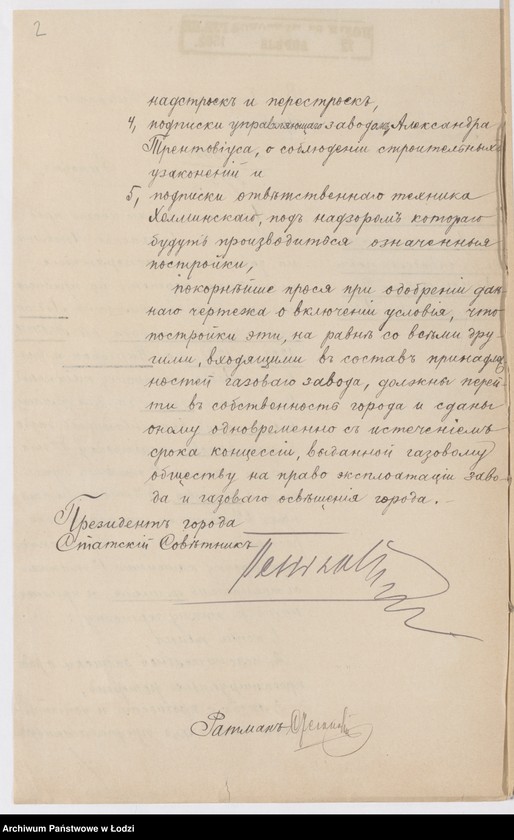 2
надстроекъ и перестроекъ,
4, подписки управляющаго заводомъ Александра
Трентовіуса, о соблюденіи строительныхъ
узаконеній и
5, подписки отвѣтственнаго техника
Хелминскаго, подъ надзоромъ котораго
будутъ производиться означенныя
постройки,
покорнѣйше прося при одобреніи дан-
наго чертежа о включеніи условія, что
постройки эти, на равнѣ со всѣми дру-
гими, входящими въ составъ принадлеж
ностей газоваго завода, должны перей-
ти въ собственность города и сданы
оному одновременно съ истеченіемъ
срока концессіи, выданной газовому
обществу на право эксплоатаціи заво-
да и газоваго освѣщенія города. –
Президентъ города
Статскій Совѣтникъ
Ратманъ
Archiwum Państwowe w Łodzi